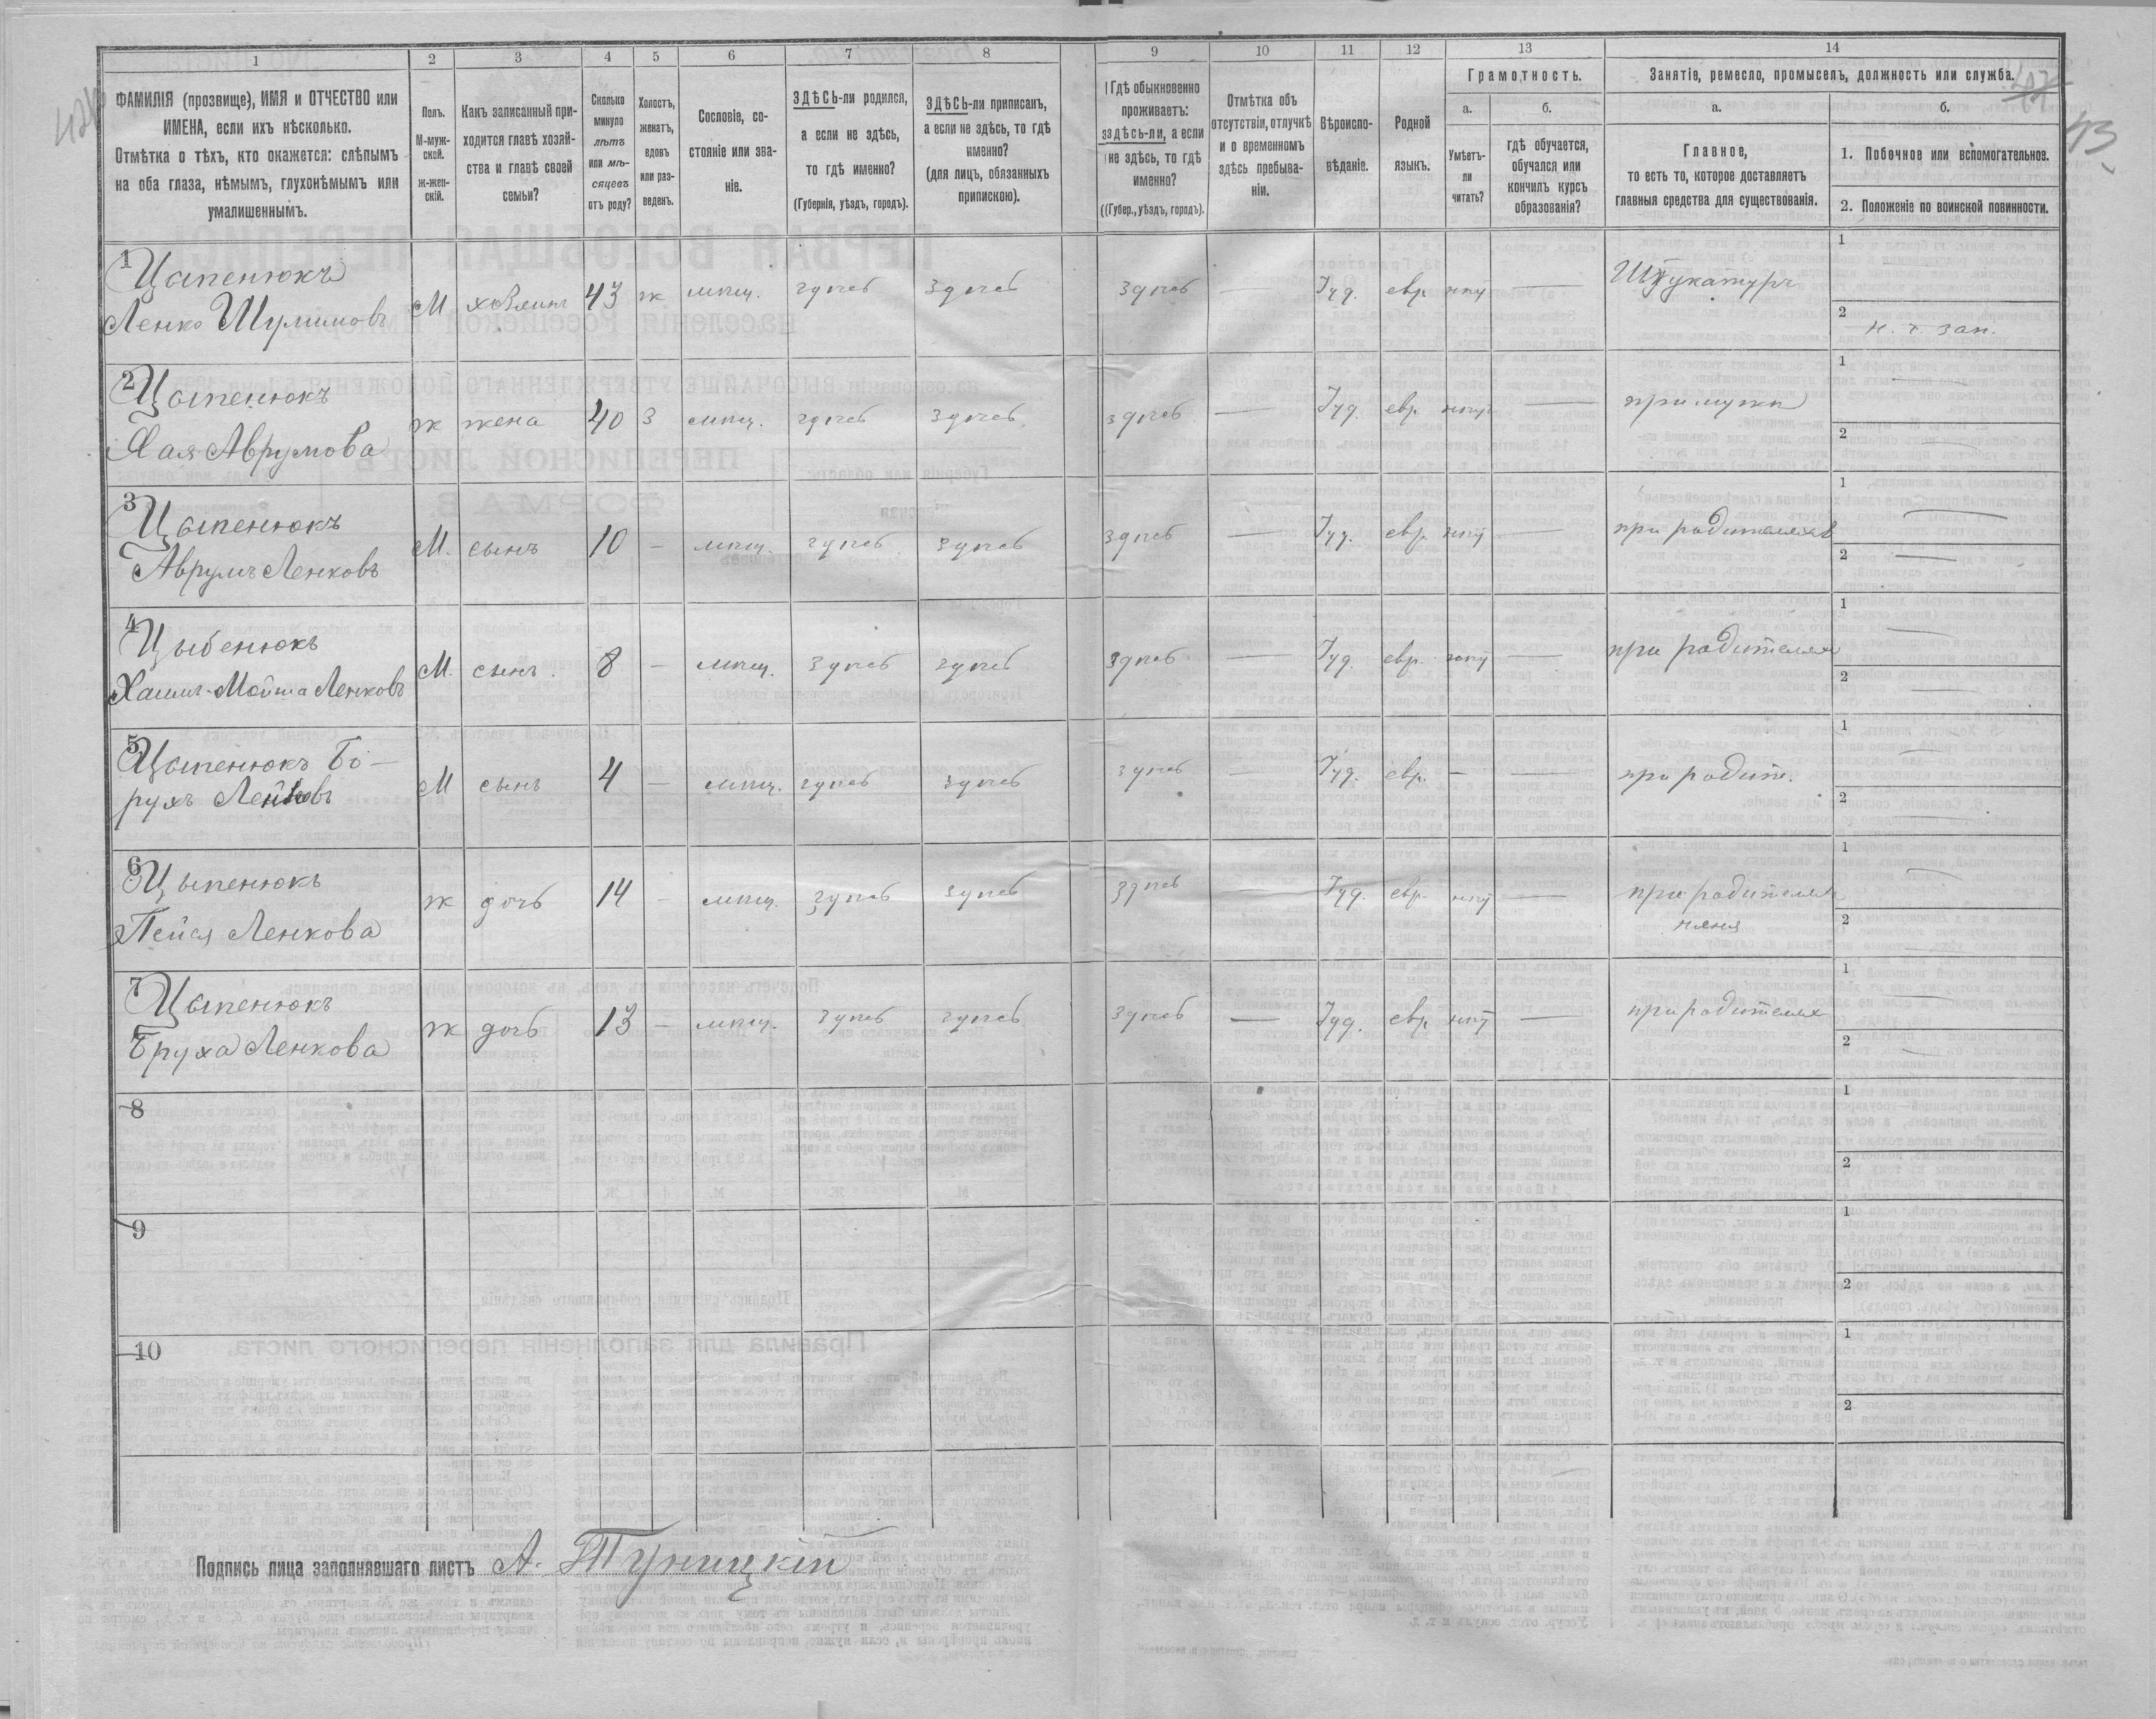 1 2 3 4 5 6 7 8 9 10 11 12 13 14
ФАМИЛІЯ (прозвище), ИМЯ и ОТЧЕСТВО или
ИМЕНА, если ихъ нѣсколько.
Отмѣтка о тѣхъ, кто окажется: слѣпымъ
на оба глаза, нѣмымъ, глухонѣмымъ или
умалишеннымъ.
Полъ.
М-муж-
ской.
ж-жен-
скій.
Какъ записанный при-
ходится главѣ хозяй-
ства и главѣ своей
семьи?
Сколько
минуло
лѣтъ
или мѣ-
сяцевъ
отъ роду?
Холостъ,
женатъ,
вдовъ
или раз-
веденъ.
Сословіе, со-
стояніе или зва-
ніе.
ЗДѢСЬ-ли родился,
а если не здѣсь,
то гдѣ именно?
(Губернія, уѣздъ, городъ).
ЗДѢСЬ-ли приписанъ,
а если не здѣсь, то гдѣ
именно?
(для лицъ, обязанныхъ
припискою).
Гдѣ обыкновенно
проживаетъ:
здѣсь-ли, а если
не здѣсь, то гдѣ
именно?
(Губер., уѣздъ, городъ).
Отмѣтка объ
отсутствіи, отлучкѣ
и о временномъ
здѣсь пребыва-
ніи.
Вѣроиспо-
вѣданіе.
Родной
языкъ.
Грамотность.
а. б.
Умѣетъ-
ли
читать?
гдѣ обучается,
обучался или
кончилъ курсъ
образованія?
Занятіе, ремесло, промыселъ, должность или служба.
а. б.
Главное,
то есть то, которое доставляетъ
главныя средства для существованія.
1. Побочное или вспомогательное.
2. Положеніе по воинской повинности.
43
1 Цыпенюкъ
Ленко Шулимовъ М хозяинъ 43 ж мѣщ. здѣсь здѣсь здѣсь — Іуд. евр. нѣт — Штукатуръ
1
2 н. т. зап.
2 Цыпенюкъ
Хая Аврумова ж жена 40 З мѣщ. здѣсь здѣсь здѣсь — Іуд. евр. нѣт — при мужѣ
1 —
2 —
3 Цыпенюкъ
Аврумъ Ленковъ М. сынъ 10 — мѣщ. здѣсь здѣсь здѣсь — Іуд. евр. нѣт — при родителяхъ
1 —
2 —
4 Цыбенюкъ
Хаимъ-Мойша Ленковъ М. сынъ. 8 — мѣщ. здѣсь здѣсь здѣсь — Іуд. евр. нѣт — при родителях
1 —
2 —
5 Цыпенюкъ Бо-
рухъ Лейковъ М сынъ 4 — мѣщ. здѣсь здѣсь здѣсь — Іуд. евр. — — при родит.
1 —
2 —
6 Цыпенюкъ
Пейся Ленкова ж дочь 14 - мѣщ. здѣсь здѣсь здѣсь — Іуд. евр. нѣт — при родителях
няня
1 —
2 —
7 Цыпенюкъ
Бруха Ленкова ж дочь 13 — мѣщ. здѣсь здѣсь здѣсь — Іуд. евр. нѣт — при родителях
1 —
2 —
8
1
2
9
1
2
10
1
2
Подпись лица заполнявшаго листъ А. Туницкій